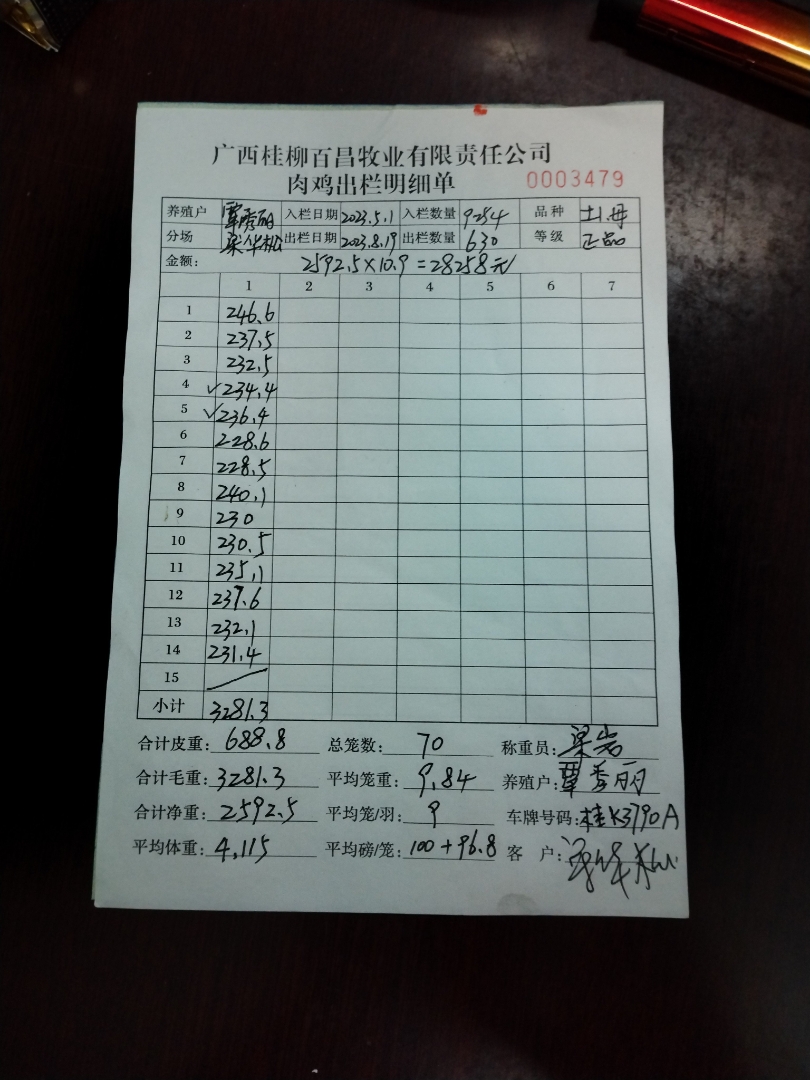 广西桂柳百昌牧业有限责任公司
肉鸡出栏明细单 0003479
养殖户 覃秀丽 入栏日期 2023.5.1 入栏数量 9254 品种 土1母
分场 梁华松 出栏日期 2023.8.19 出栏数量 630 等级 正品
金额: 2592.5×10.9=28258元
1 2 3 4 5 6 7
1 246.6
2 237.5
3 232.5
4 ✓234.4
5 ✓236.4
6 228.6
7 228.5
8 240.1
9 230
10 230.5
11 235.1
12 237.6
13 232.1
14 231.4
15
小计 3281.3
合计皮重: 688.8 总笼数: 70 称重员: 梁岩
合计毛重: 3281.3 平均笼重: 9.84 养殖户: 覃秀丽
合计净重: 2592.5 平均笼/羽: 9 车牌号码: 桂K3790A
平均体重: 4.115 平均磅/笼: 100+96.8 客 户: 梁华松